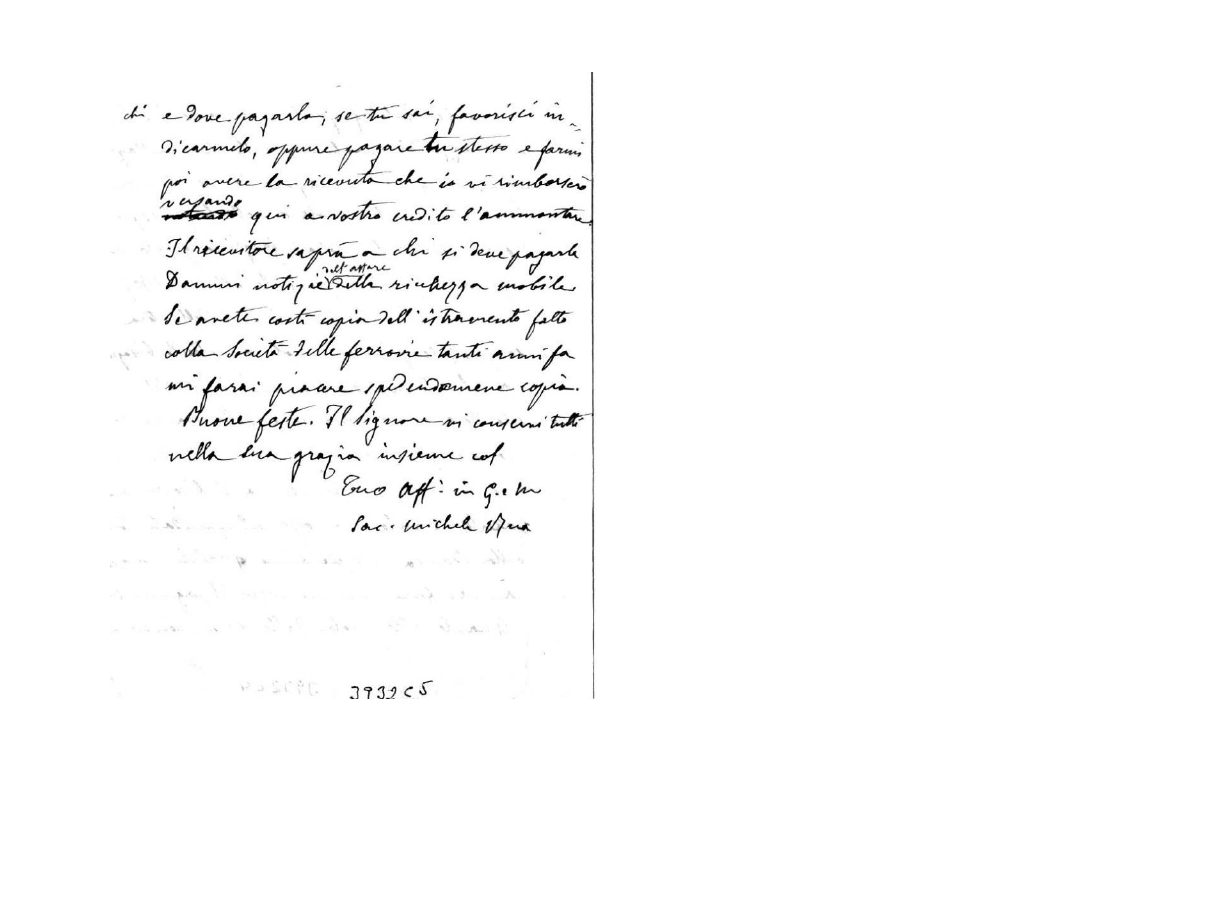 chi e dove pagarla; se tu sai, favorisci in-
dicarmelo, oppure pagare tu stesso e farmi
poi avere la ricevuta che io vi rimborserò
versando
qui a vostro credito l'ammontare.
Il ricevitore saprà a chi si deve pagarla
dell'affare
Dammi notizie della richezza mobile
Se avete costì copia dell'istrumento fatto
colla Società delle ferrovie tanti anni fa
mi farai piacere spedendomene copia.
Buone feste. Il Signore vi conservi tutti
nella sua grazia insieme col
Tuo aff: in G. e M
Sac. Michele Rua
3932C5